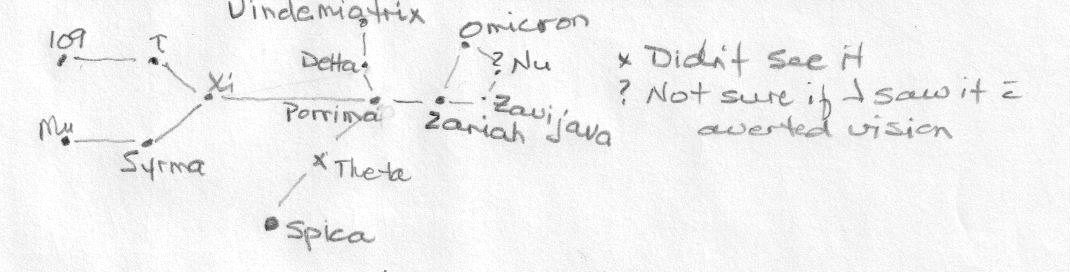 Vindemiatrix
Omicron
109
τ
Delta
? Nu
x Didn't see it
Xi
Porrima
Zaniah
Zavijava
? Not sure if I saw it c̄
averted vision
Mu
Syrma
x Theta
Spica